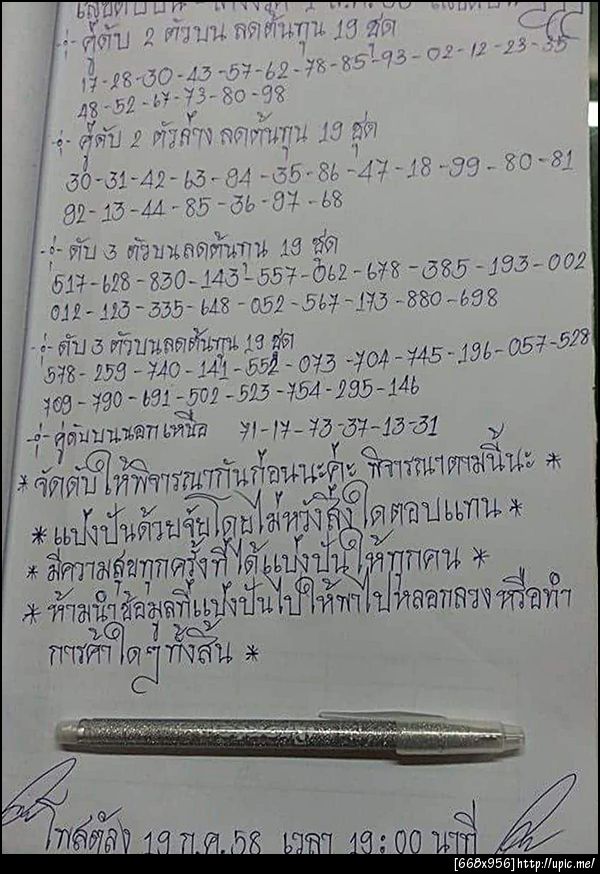 -:- คู่ดับ 2 ตัวบน ลดต้นทุน 19 ชุด
17-28-30-43-57-62-78-85-93-02-12-23-35
48-52-67-73-80-98
-:- คู่ดับ 2 ตัวล่าง ลดต้นทุน 19 ชุด
30-31-42-63-94-35-86-47-18-99-80-81
92-13-44-85-36-97-68
-:- ดับ 3 ตัวบนลดต้นทุน 19 ชุด
517-628-830-143-557-062-678-385-193-002
012-123-335-648-052-567-173-880-698
-:- ดับ 3 ตัวบนลดต้นทุน 19 ชุด
578-259-740-141-552-073-704-745-196-057-528
709-790-691-502-523-754-295-146
-:- คู่ดับบนนอกเหนือ 71-17-73-37-13-31
* จัดดับให้พิจารณากันก่อนนะค่ะ พิจารณาตามนี้นะ *
* แบ่งปันด้วยจัยโดยไม่หวังสิ่งใดตอบแทน *
* มีความสุขทุกครั้งที่ได้แบ่งปันให้ทุกคน *
* ห้ามนำข้อมูลที่แบ่งปันไปให้พาไปหลอกลวงหรือทำ
การค้าใดๆทั้งสิ้น *
โพสต์ลง 19 ก.ค.58 เวลา 19:00 นาที
[668x956]http://upic.me/